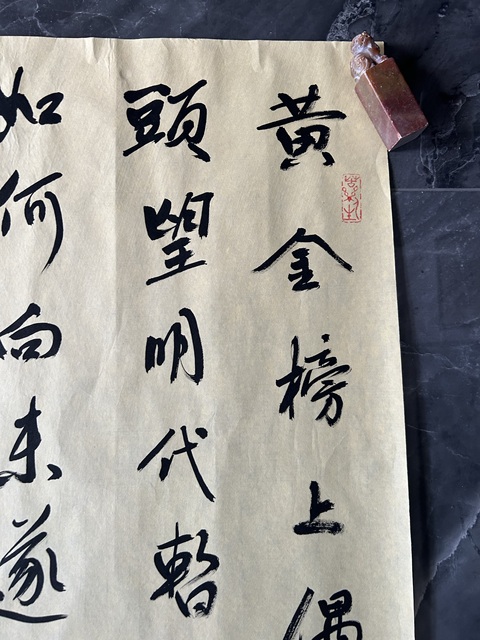 黄金榜上偶
頭望明代暫
如何向未遂